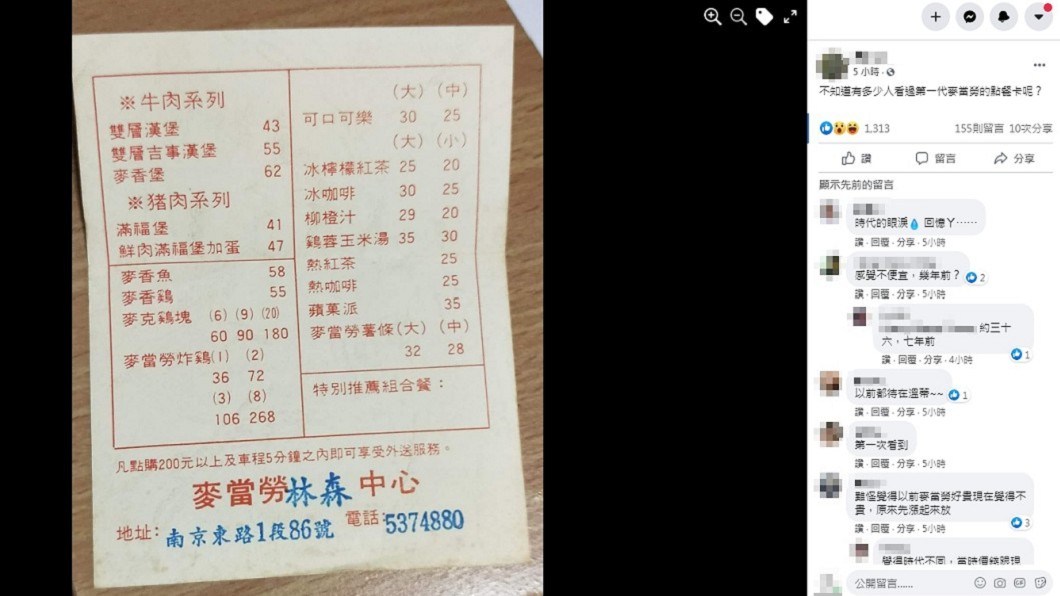 ※牛肉系列
雙層漢堡 43
雙層吉事漢堡 55
麥香堡 62
※猪肉系列
滿福堡 41
鮮肉滿福堡加蛋 47
麥香魚 58
麥香鷄 55
麥克鷄塊 (6) (9) (20)
60 90 180
麥當勞炸鷄(1) (2)
36 72
(3) (8)
106 268
(大) (中)
可口可樂 30 25
(大) (小)
冰檸檬紅茶 25 20
冰咖啡 30 25
柳橙汁 29 20
鷄蓉玉米湯 35 30
熱紅茶 25
熱咖啡 25
蘋菓派 35
麥當勞薯條(大) (中)
32 28
特別推薦組合餐：
凡點購200元以上及車程5分鐘之內即可享受外送服務。
麥當勞林森中心
地址：南京東路1段86號 電話：5374880
5 小時
不知道有多少人看過第一代麥當勞的點餐卡呢？
1,313 155則留言 10次分享
讚 留言 分享
顯示先前的留言
時代的眼淚💧 回憶丫……
讚 · 回覆 · 分享 · 5小時
感覺不便宜，幾年前？ 2
讚 · 回覆 · 分享 · 5小時
約三十
六，七年前
1
讚 · 回覆 · 分享 · 4小時
以前都待在溫蒂~~ 1
讚 · 回覆 · 分享 · 5小時
第一次看到
讚 · 回覆 · 分享 · 5小時
難怪覺得以前麥當勞好貴現在覺得不
貴，原來先漲起來放
3
讚 · 回覆 · 分享 · 5小時
覺得時代不同，當時價錢跟現
公開留言……